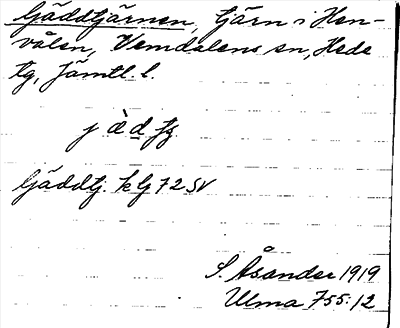 Gäddtjärnen, tjärn i Hen-
vålen, Vemdalens sn, Hede
tg, Jämtl. l.
Gäddtj. klg 72 SV
S. Åsander 1919
Ulma 755:12